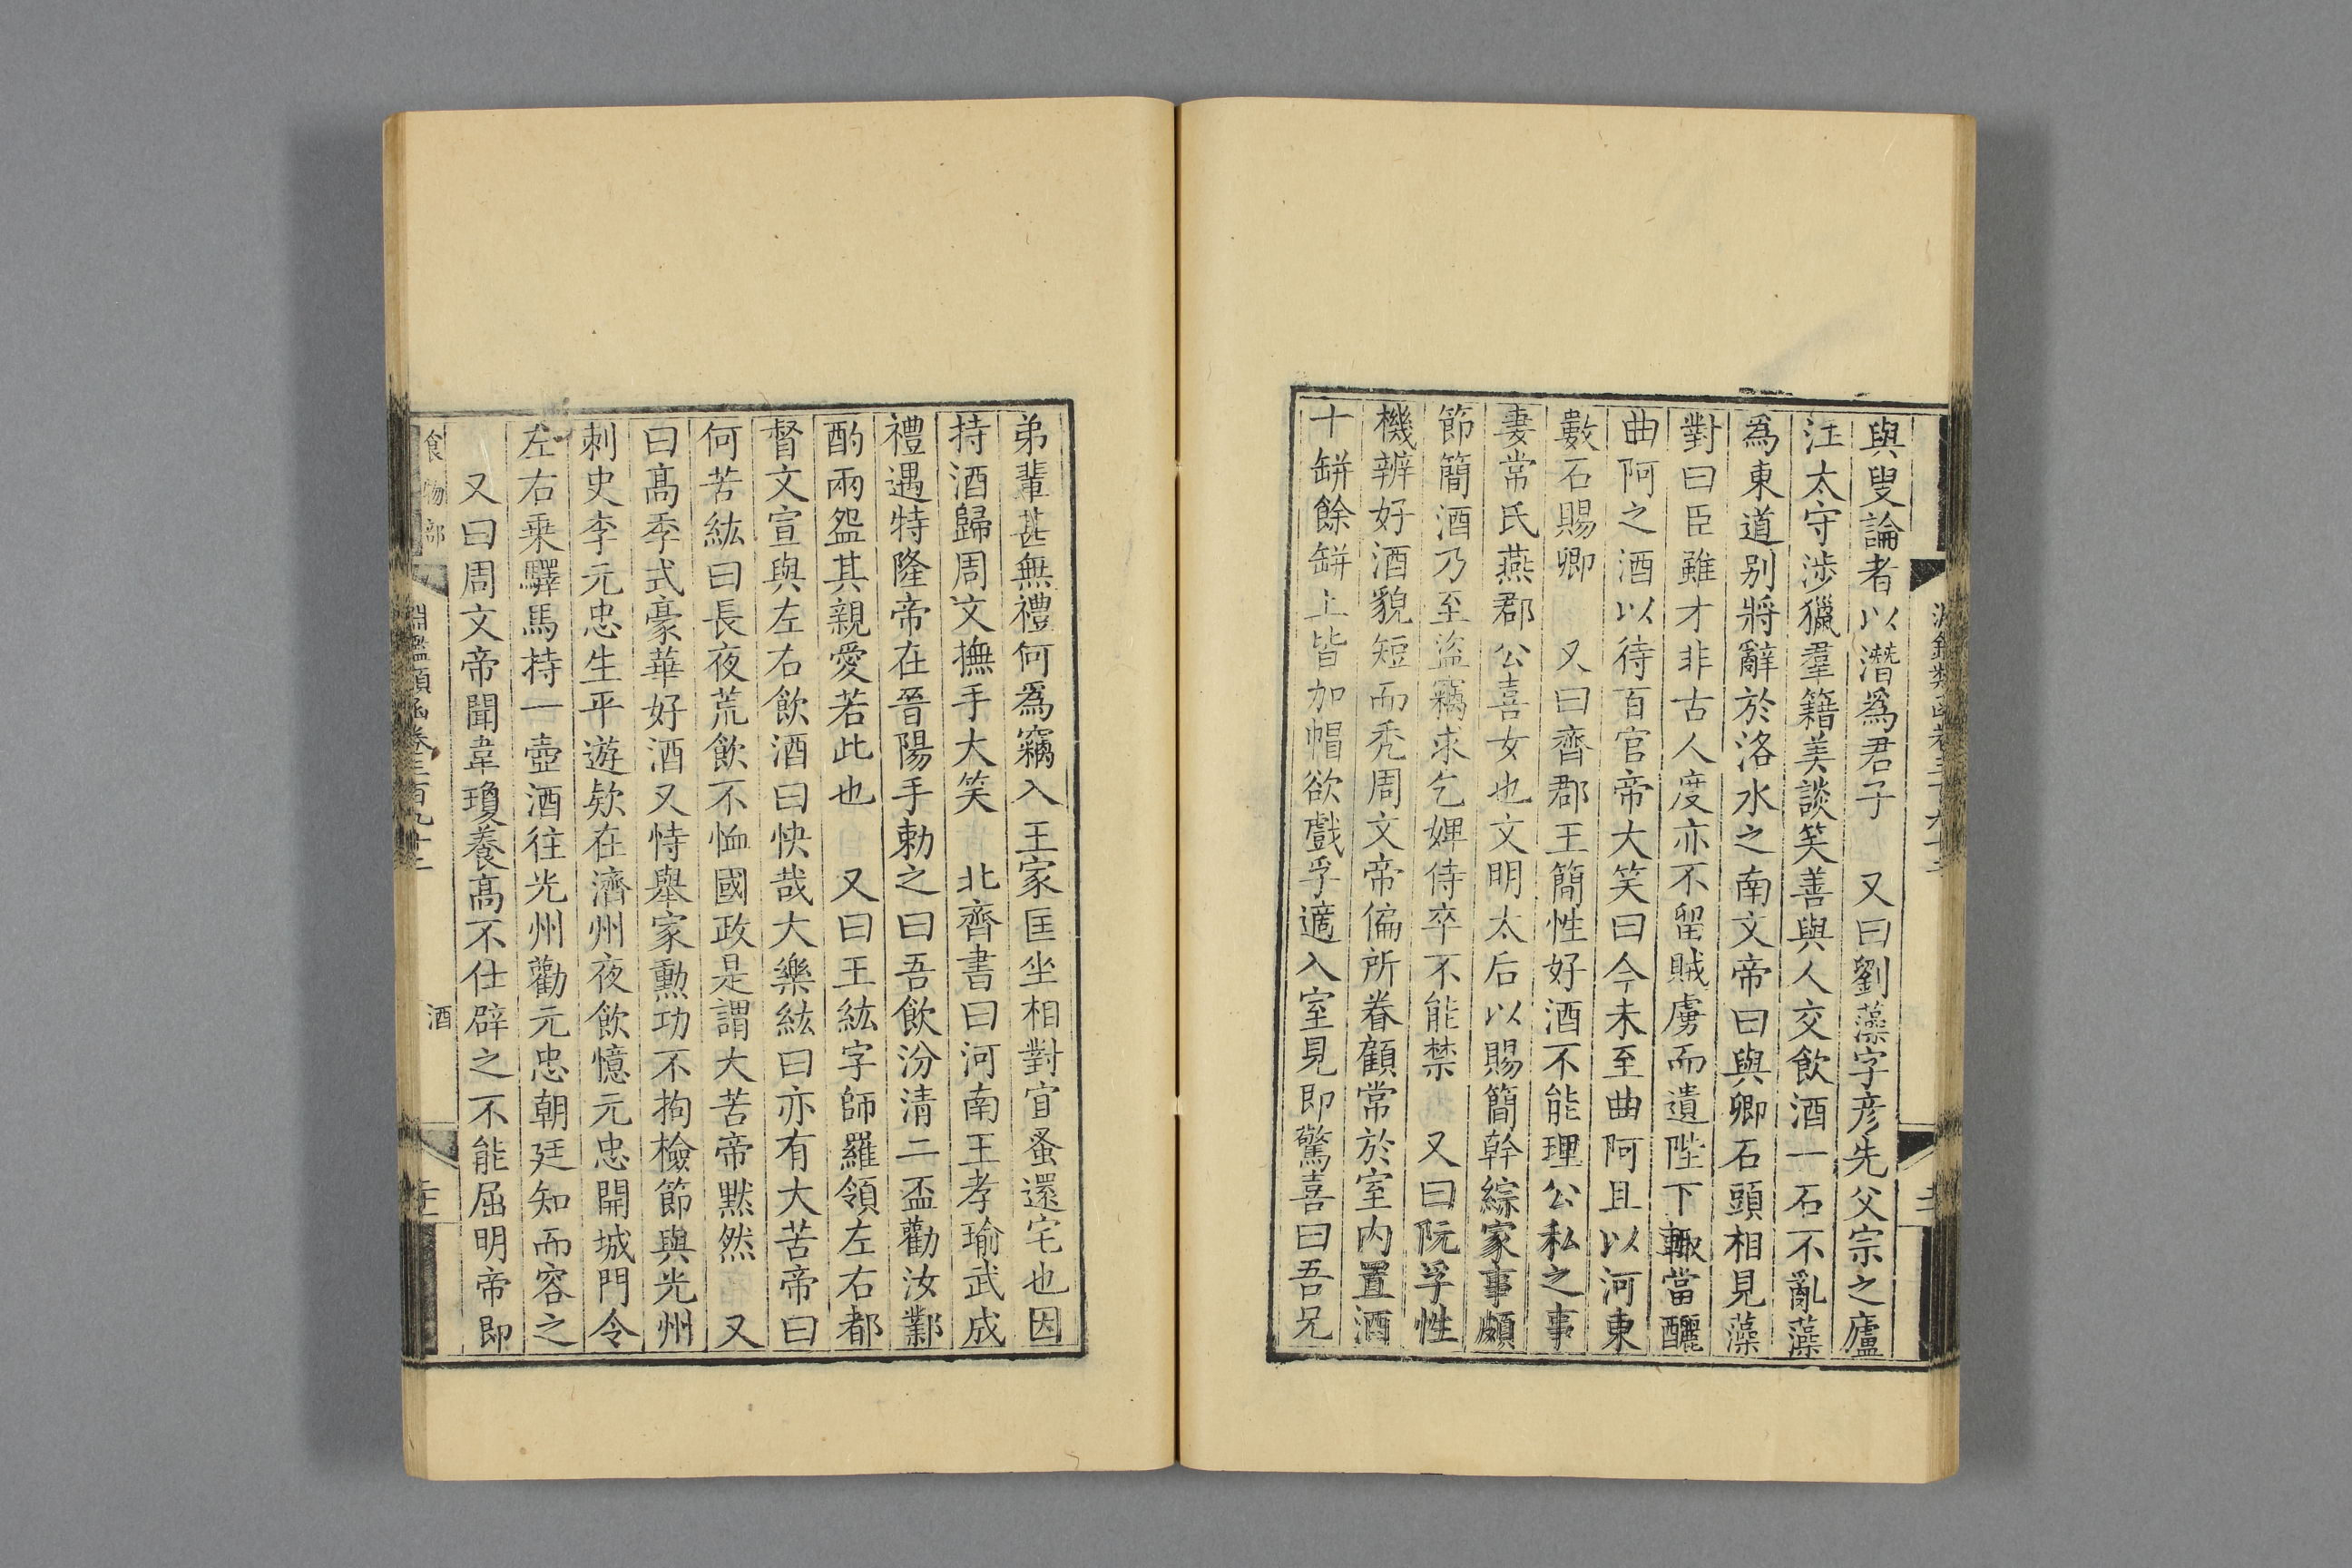 與叟論者以潛爲君子 又曰劉藻字彦先父宗之廬
江太守涉獵羣籍美談笑善與人交飲酒一石不亂藻
為東道别將辭於洛水之南文帝曰與卿石頭相見藻
對曰臣雖才非古人度亦不留賊虜而遺陛下輙當釃
曲阿之酒以待百官帝大笑曰今未至曲阿且以河東
數石賜卿 又曰齊郡王簡性好酒不能理公私之事
妻常氏燕郡公喜女也文明太后以賜簡幹綜家事頗
節簡酒乃至盜竊求乞婢侍卒不能禁 又曰阮孚性
機辨好酒貌短而秃周文帝偏所眷顧常於室内置酒
十缾餘缾上皆加帽欲戲孚適入室見即驚喜曰吾兄
弟輩甚無禮何爲竊入王家匡坐相對宜蚤還宅也因
持酒歸周文撫手大笑 北齊書曰河南王孝瑜武成
禮遇特隆帝在晉陽手勅之曰吾飲汾清二盃勸汝鄴
酌兩盌其親愛若此也 又曰王紘字師羅領左右都
督文宣與左右飲酒曰快哉大樂紘曰亦有大苦帝曰
何苦紘曰長夜荒飲不恤國政是謂大苦帝默然 又
曰髙季式豪華好酒又恃舉家勳功不拘檢節與光州
刺史李元忠生平遊欵在濟州夜飲憶元忠開城門令
左右乗驛馬持一壺酒往光州勸元忠朝廷知而容之
又曰周文帝聞韋瓊養髙不仕辟之不能屈明帝即
食物部
淵鑑類函卷三百九十二
酒